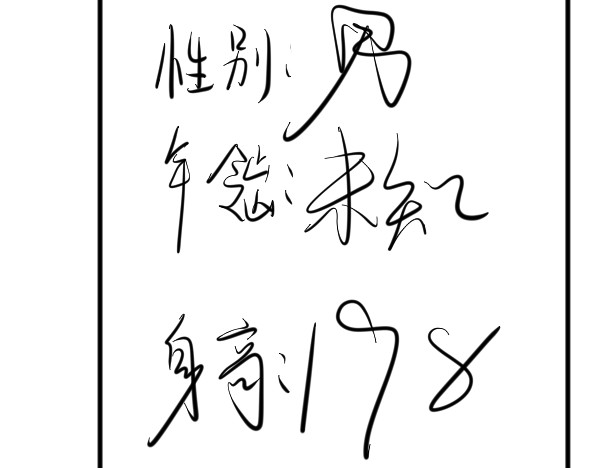 性别:男
年龄:未知
身高:198